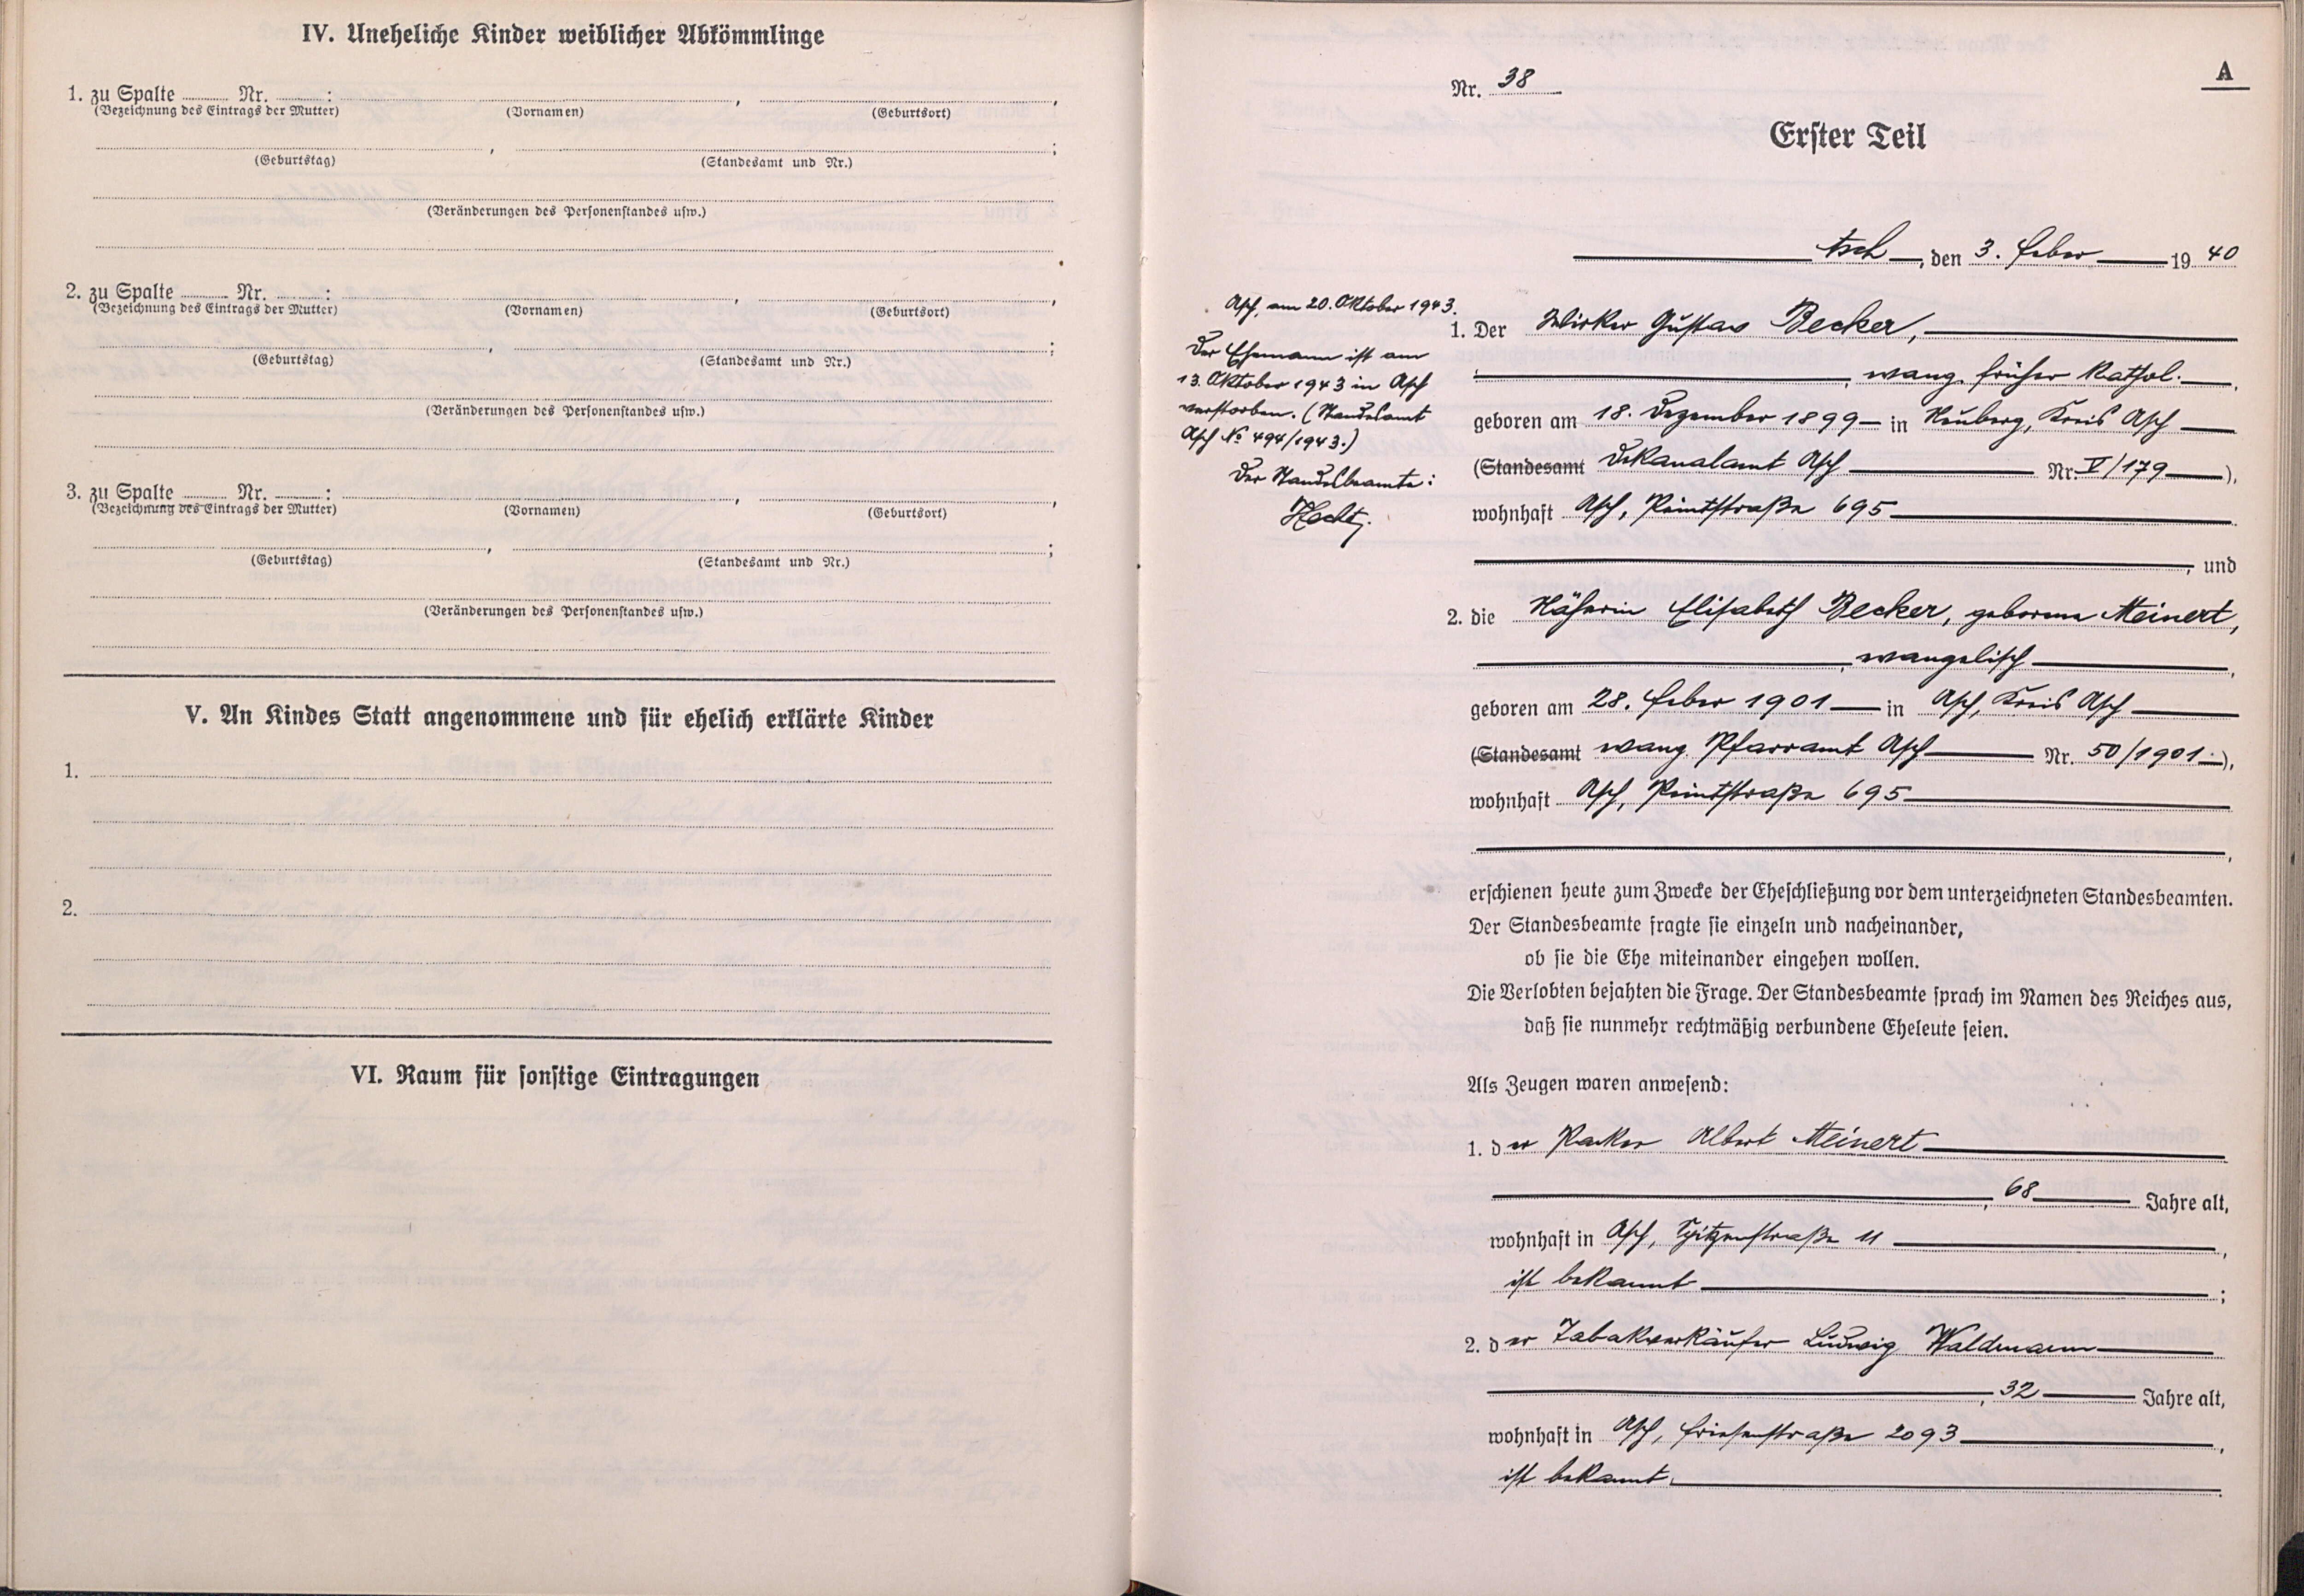 IV. Uneheliche Kinder weiblicher Abkömmlinge
1. zu Spalte ........ Nr. ........ : ........ , ........ ,
(Bezeichnung des Eintrags der Mutter) (Vornamen) (Geburtsort)
........ , ........ ;
(Geburtstag) (Standesamt und Nr.)
(Veränderungen des Personenstandes usw.)
2. zu Spalte ........ Nr. ........ : ........ , ........ ,
(Bezeichnung des Eintrags der Mutter) (Vornamen) (Geburtsort)
........ , ........ ;
(Geburtstag) (Standesamt und Nr.)
(Veränderungen des Personenstandes usw.)
3. zu Spalte ........ Nr. ........ : ........ , ........ ,
(Bezeichnung des Eintrags der Mutter) (Vornamen) (Geburtsort)
........ , ........ ;
(Geburtstag) (Standesamt und Nr.)
(Veränderungen des Personenstandes usw.)
V. An Kindes Statt angenommene und für ehelich erklärte Kinder
1.
2.
VI. Raum für sonstige Eintragungen
A
Nr. 38
Erster Teil
Asch, den 3. Feber 19 40
Asch, am 20. Oktober 1943.
Der Ehemann ist am
13. Oktober 1943 in Asch
verstorben. (Standesamt
Asch No 494/1943.)
Der Standesbeamte:
1. Der Wirker Gustav Becker,
, evang. früher kathol. ,
geboren am 18. Dezember 1899 in Neuberg, Kreis Asch
(Standesamt Dekanalamt Asch Nr. V/179 ),
wohnhaft Asch, Peintstraße 695
, und
2. die Näherin Elisabeth Becker, geborene Meinert,
, evangelisch ,
geboren am 28. Feber 1901 in Asch, Kreis Asch
(Standesamt evang. Pfarramt Asch Nr. 50/1901.),
wohnhaft Asch, Peintstraße 695
,
erschienen heute zum Zwecke der Eheschließung vor dem unterzeichneten Standesbeamten.
Der Standesbeamte fragte sie einzeln und nacheinander,
ob sie die Ehe miteinander eingehen wollen.
Die Verlobten bejahten die Frage. Der Standesbeamte sprach im Namen des Reiches aus,
daß sie nunmehr rechtmäßig verbundene Eheleute seien.
Als Zeugen waren anwesend:
1. der Packer Albert Meinert
, 68 Jahre alt,
wohnhaft in Asch, Spitzenstraße 11 ,
ist bekannt ;
2. der Tabakverkäufer Ludwig Waldmann
, 32 Jahre alt,
wohnhaft in Asch, Friesenstraße 2093 ,
ist bekannt .